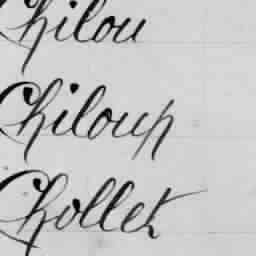 Chilou
Chiloup
Chollet